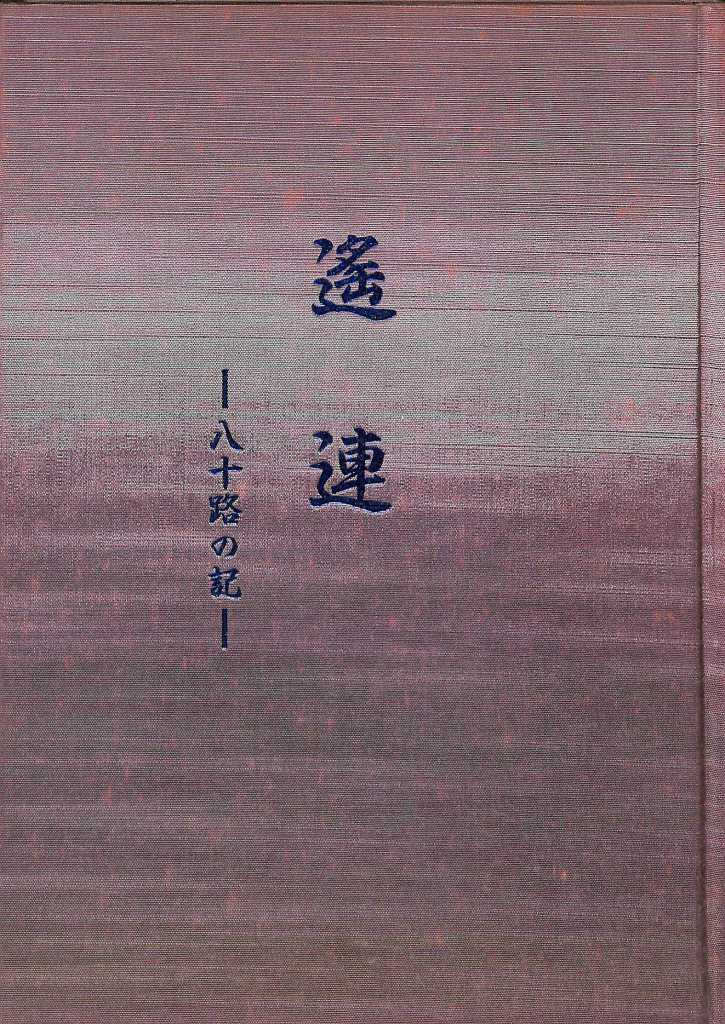 遙連
―八十路の記―